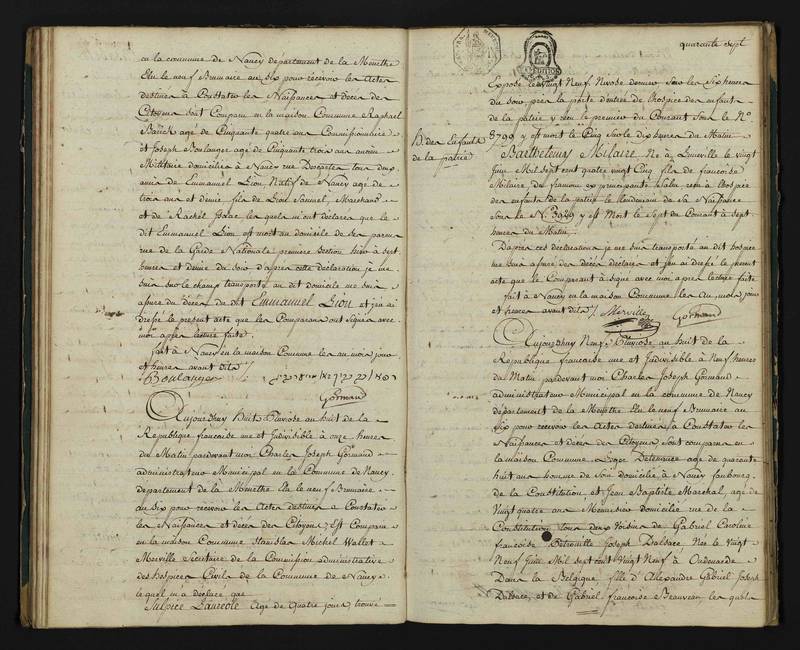 en la commune de Nancy département de la Meurthe
Elu le neuf Brumaire an Six pour recevoir les Actes
destinés à Constater les Naissances et décès des
Citoyens sont Comparu en la maison Commune Raphael
âgé de Cinquante quatre ans Commissionnaire
et Joseph Boulanger agé de Cinquante trois ans ancien
Militaire domiciliés à Nancy rue Descartes tous deux
amis de Emmanuel Lion Natif de Nancy age de
trois ans et demie fils de Lion Samuel, Marchand
et de Rachel Isaac les quels m'ont déclaré que le
dit Emmanuel Lion est mort au domicile de ses parens
rue de la Garde Nationale premiere Section hier à sept
heures et demie du soir d'après cette déclaration je me
suis sur le champ transporté au dit domicile me suis
assuré du décès du dit Emmanuel Lion et j'en ai
dressé le présent acte que les Comparans ont signés avec
moi après lecture faite
fait à Nancy en la maison Commune les an mois jour
et heures avant dits
Boulanger
Gormand
Aujourdhuy Huit Pluviose an huit de la
Republique francoise une et Indivisible à onze heures
du Matin pardevant moi Charles Joseph Gormand
administrateur Municipal en la Commune de Nancy
département de la Meurthe Elu le neuf Brumaire
an Six pour recevoir les Actes destinés à Constater
les Naissances et décès des Citoyens, Est Comparu
en la maison Commune Stanislas Michel Wallet
Merville Secretaire de la Commission administrative
des hospices Civils de la Commune de Nancy
lequel m'a déclaré que
Sulpice Laureole Agé de Quatre jours trouvé
quarante sept
Exposé le vingt Neuf Nivose dernier sur les Six heures
du soir, près la porte d'entrée de l'hospice des enfants
de la patrie y reçu le premier du Courant Sous le No.
8799 y est mort le Cinq Suivant dix heures du Matin
H. des Enfants
de la patrie
Barthelemy Milaire Né à Luneville le vingt
Juin Mil Sept cent quatre vingt Cinq fils de francoise
Milaire
des enfants de la patrie le lendemain de sa Naissance
Sous le No. y est Mort le Sept du Courant à Sept
heures du Matin
D'après ces déclarations je me suis transporté au dit hospice
me suis assuré des décès déclarés et j'en ai dressé le présent
acte que le Comparant à signé avec moi apres lecture faite
fait à Nancy en la maison Commune les an mois jour
et heures avant dits
Merville
Gormand
Aujourdhuy Neuf Pluviose an huit de la
Republique francoise une et Indivisible à Neuf heures
du Matin pardevant moi Charles Joseph Gormand
administrateur Municipal en la commune de Nancy
département de la Meurthe Elu le neuf Brumaire an
Six pour recevoir les Actes destinés à Constater les
Naissances et décès des Citoyens, sont comparu en
la maison Commune age de quarante
huit ans homme de Loi domicilié à Nancy faubourg
de la Constitution, et Jean Baptiste Marechal, agé de
Vingt quatre ans Menuisier domicilié rue de la
Constitution tous deux Voisins de Gabriel Caroline
francoise Petronille Joseph Dalsace, Née le Vingt
Neuf Juin Mil Sept cent Vingt Neuf à Oudenarde
Dans la Belgique, fille d'Alexandre Gabriel Joseph
Dalsace, et de Gabriel francoise Beauveau les quels